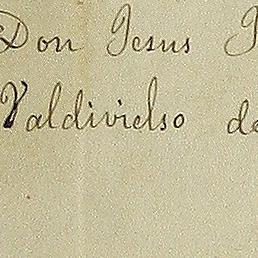 Don Jesus
Valdivielso de